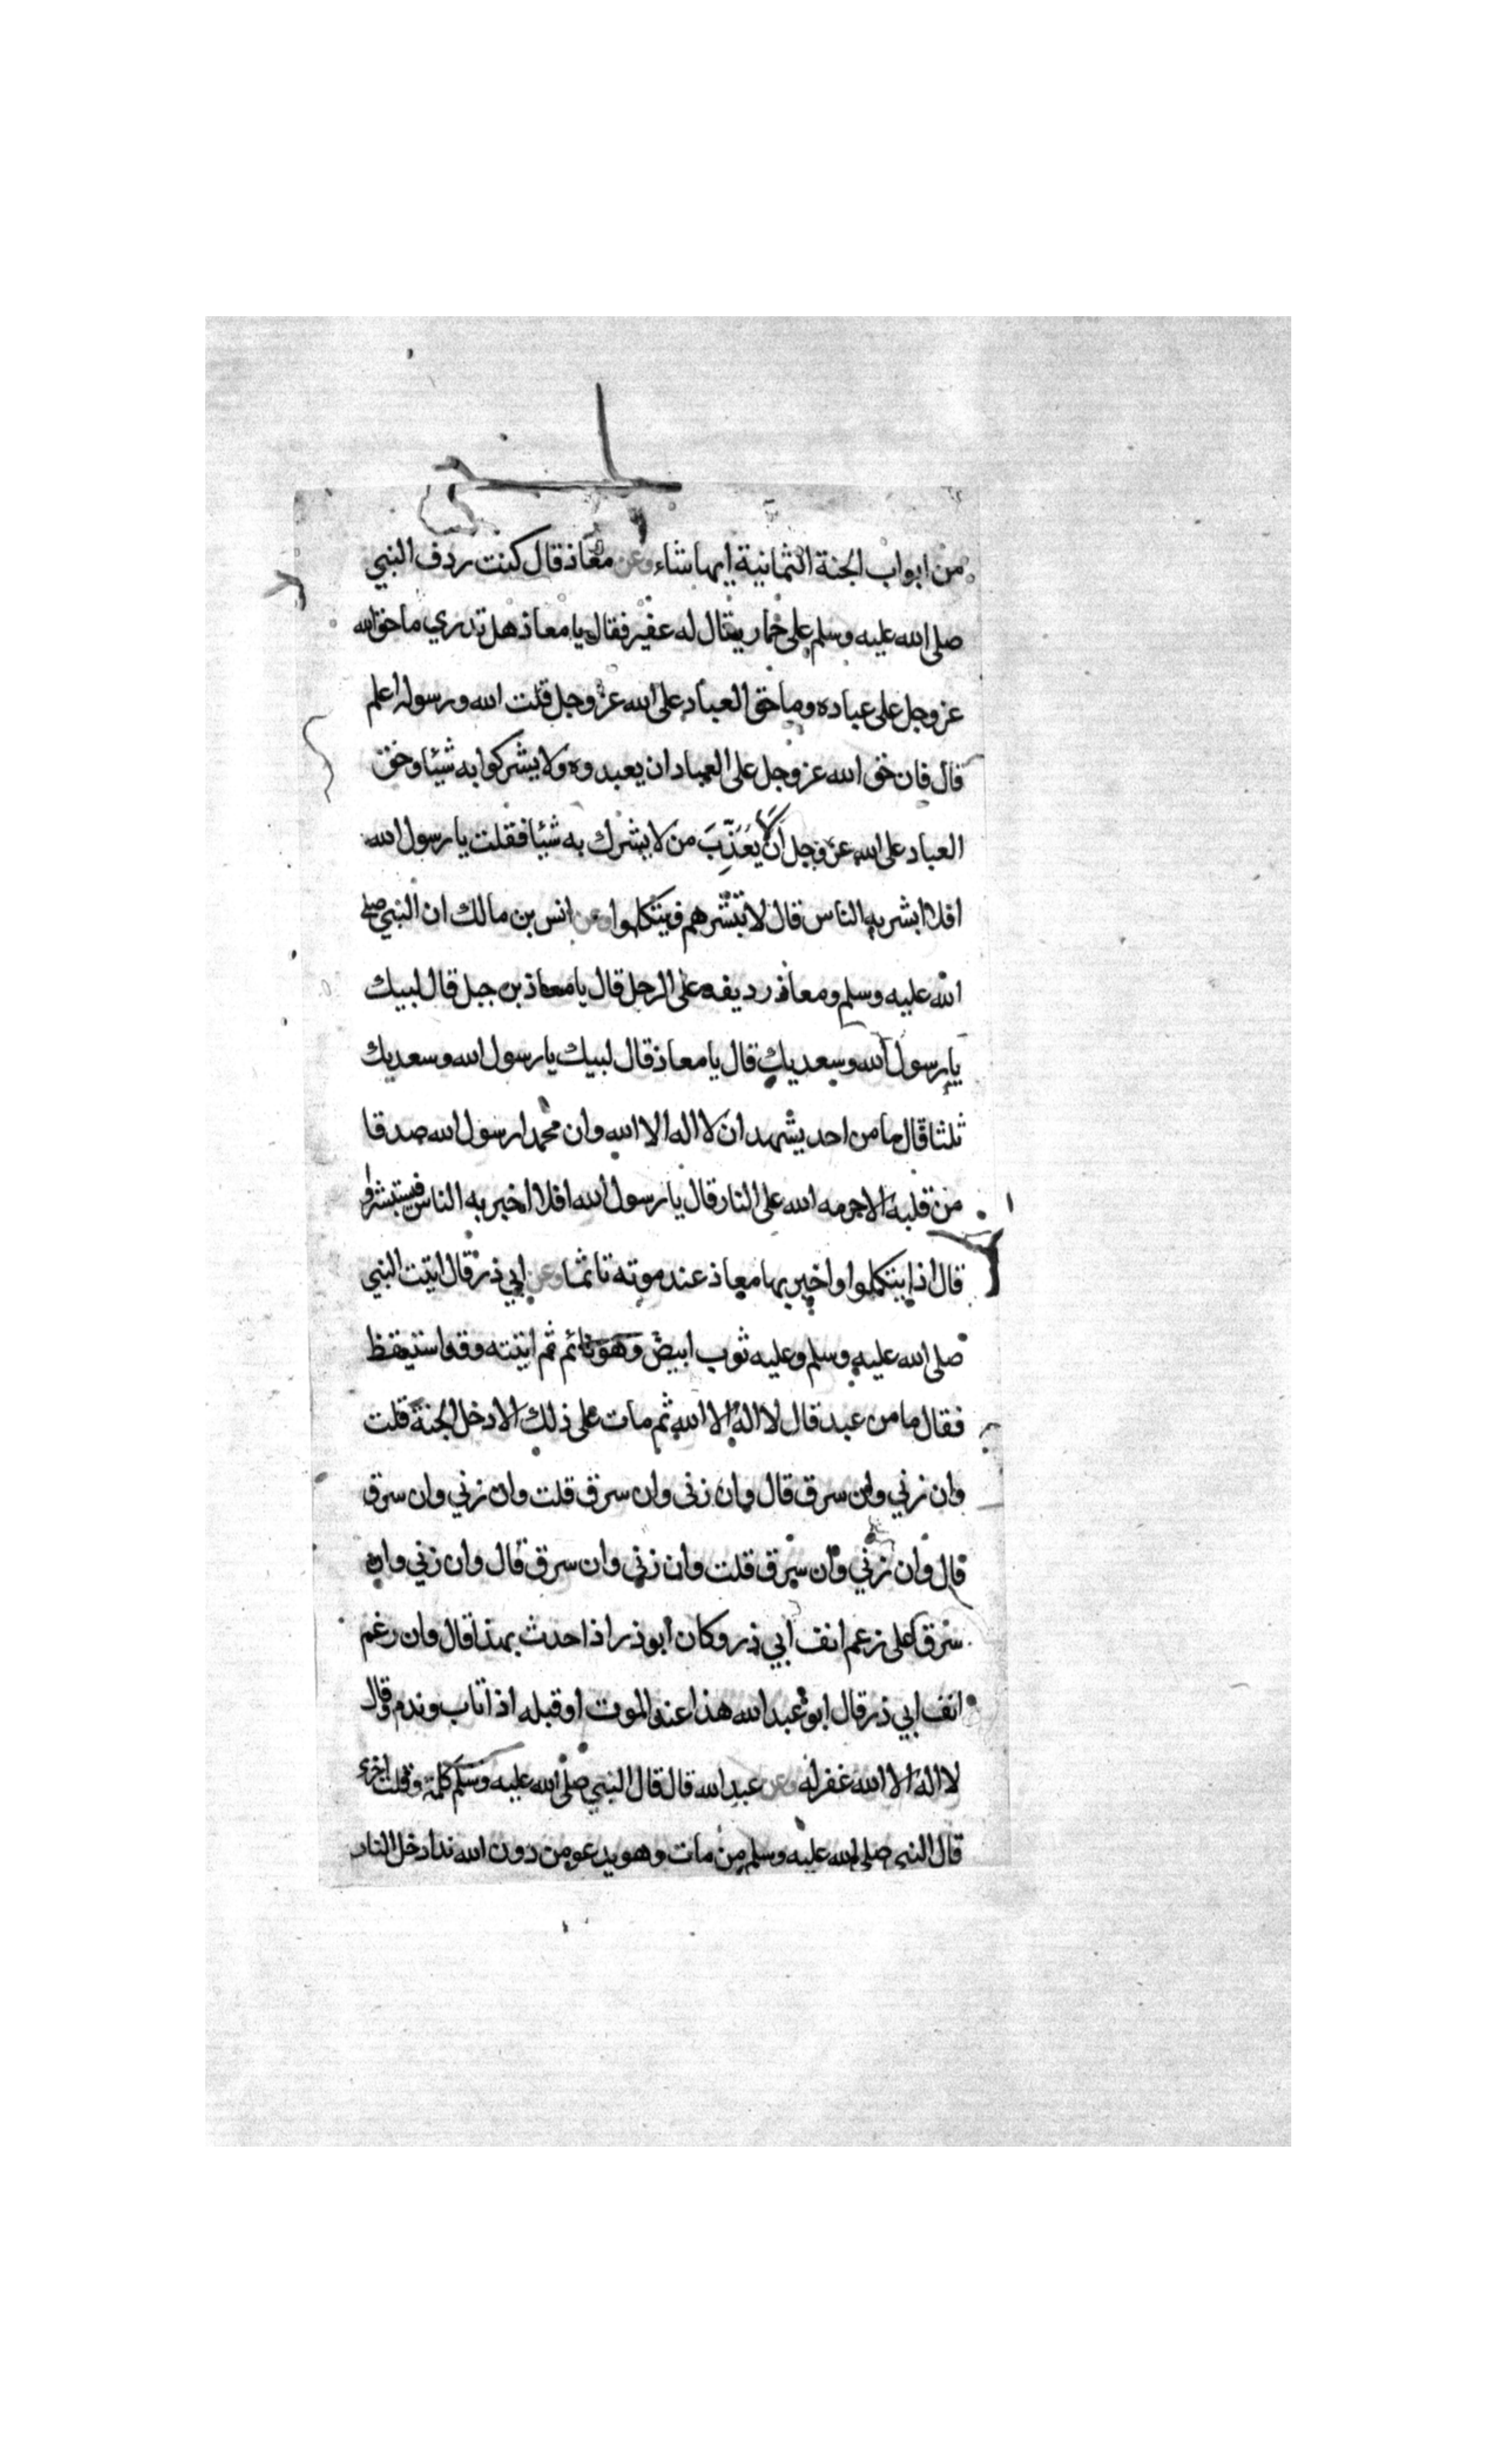 من ابواب الجنة الثمانية ايها شاء وعن معاذ قال كنت ردف النبي
صلى الله عليه وسلم على حمار يقال له عفير فقال يا معاذ هل تدري ما حق الله
عز وجل على عباده وما حق العباد على الله عز وجل قلت الله ورسوله اعلم
قال فان حق الله عز وجل على العباد ان يعبدوه ولا يشركوا به شيئا وحق
العباد على الله عز وجل ان لا يعَذِّبَ من لا يشرك به شيئا فقلت يا رسول الله
افلا ابشر به الناس قال لا تبشرهم فيتكلوا وعن انس بن مالك ان النبي صلى
الله عليه وسلم ومعاذ رديفه على الرحل قال يا معاذ بن جبل قال لبيك
يا رسول الله وسعديك قال يا معاذ قال لبيك يا رسول الله وسعديك
ثلثا قال ما من احد يشهد ان لا اله الا الله وان محمدا رسول الله صدقا
من قلبه الا حرمه الله على النار قال يا رسول الله افلا اخبر به الناس فيستبشروا
قال اذا يتكلوا واخبر بها معاذ عند موته تاثما وعن ابي ذر قال اتيت النبي
صلى الله عليه وسلم وعليه ثوب ابيض وهو نائم ثم اتيته وقد استيقظ
فقال ما من عبد قال لا اله الا الله ثم مات على ذلك الا دخل الجنة قلت
وان زني وان سرق قال وان زنى وان سرق قلت وان زني وان سرق
قال وان زني وان سرق قلت وان زنى وان سرق قال وان زني وان
سرق على زعم انف ابي ذر وكان ابو ذر اذا حدث بهذا قال وان رغم
انف ابي ذر قال ابو عبد الله هذا عند الموت او قبله اذا تاب وندم وقال
لا اله الا الله غفر له وعن عبد الله قال قال النبي صلى الله عليه وسلم كلمة وقلت اخرى
قال النبي صلى الله عليه وسلم من مات وهو يدعو من دون الله ندا دخل النار